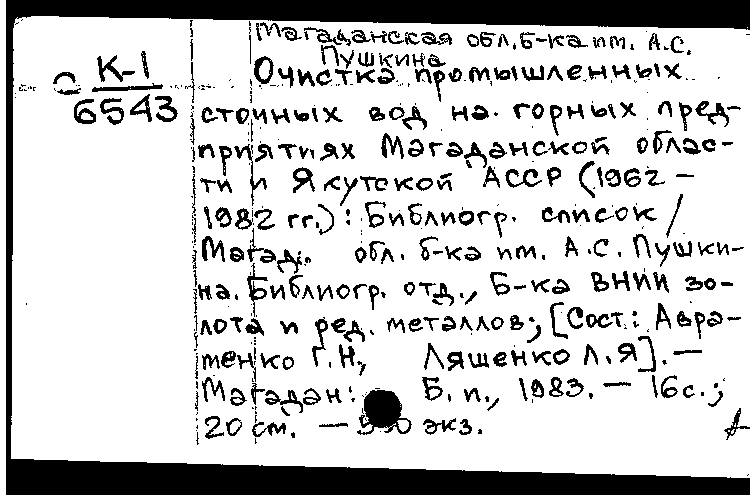 Магаданская обл. б-ка им. А.С.
Пушкина
К-1
6543
Очистка промышленных
сточных вод на горных пред-
приятиях Магаданской облас-
ти и Якутской АССР (1962 –
1982 гг.) : Библиогр. список /
Магад. обл. б-ка им. А.С. Пушки-
на. Библиогр. отд., Б-ка ВНИИ зо-
лота и ред. металлов; [Сост.: Авра-
менко Г.Н., Ляшенко Л.Я]. —
Магадан: Б. и., 1983. — 16 с.;
20 см. — экз.